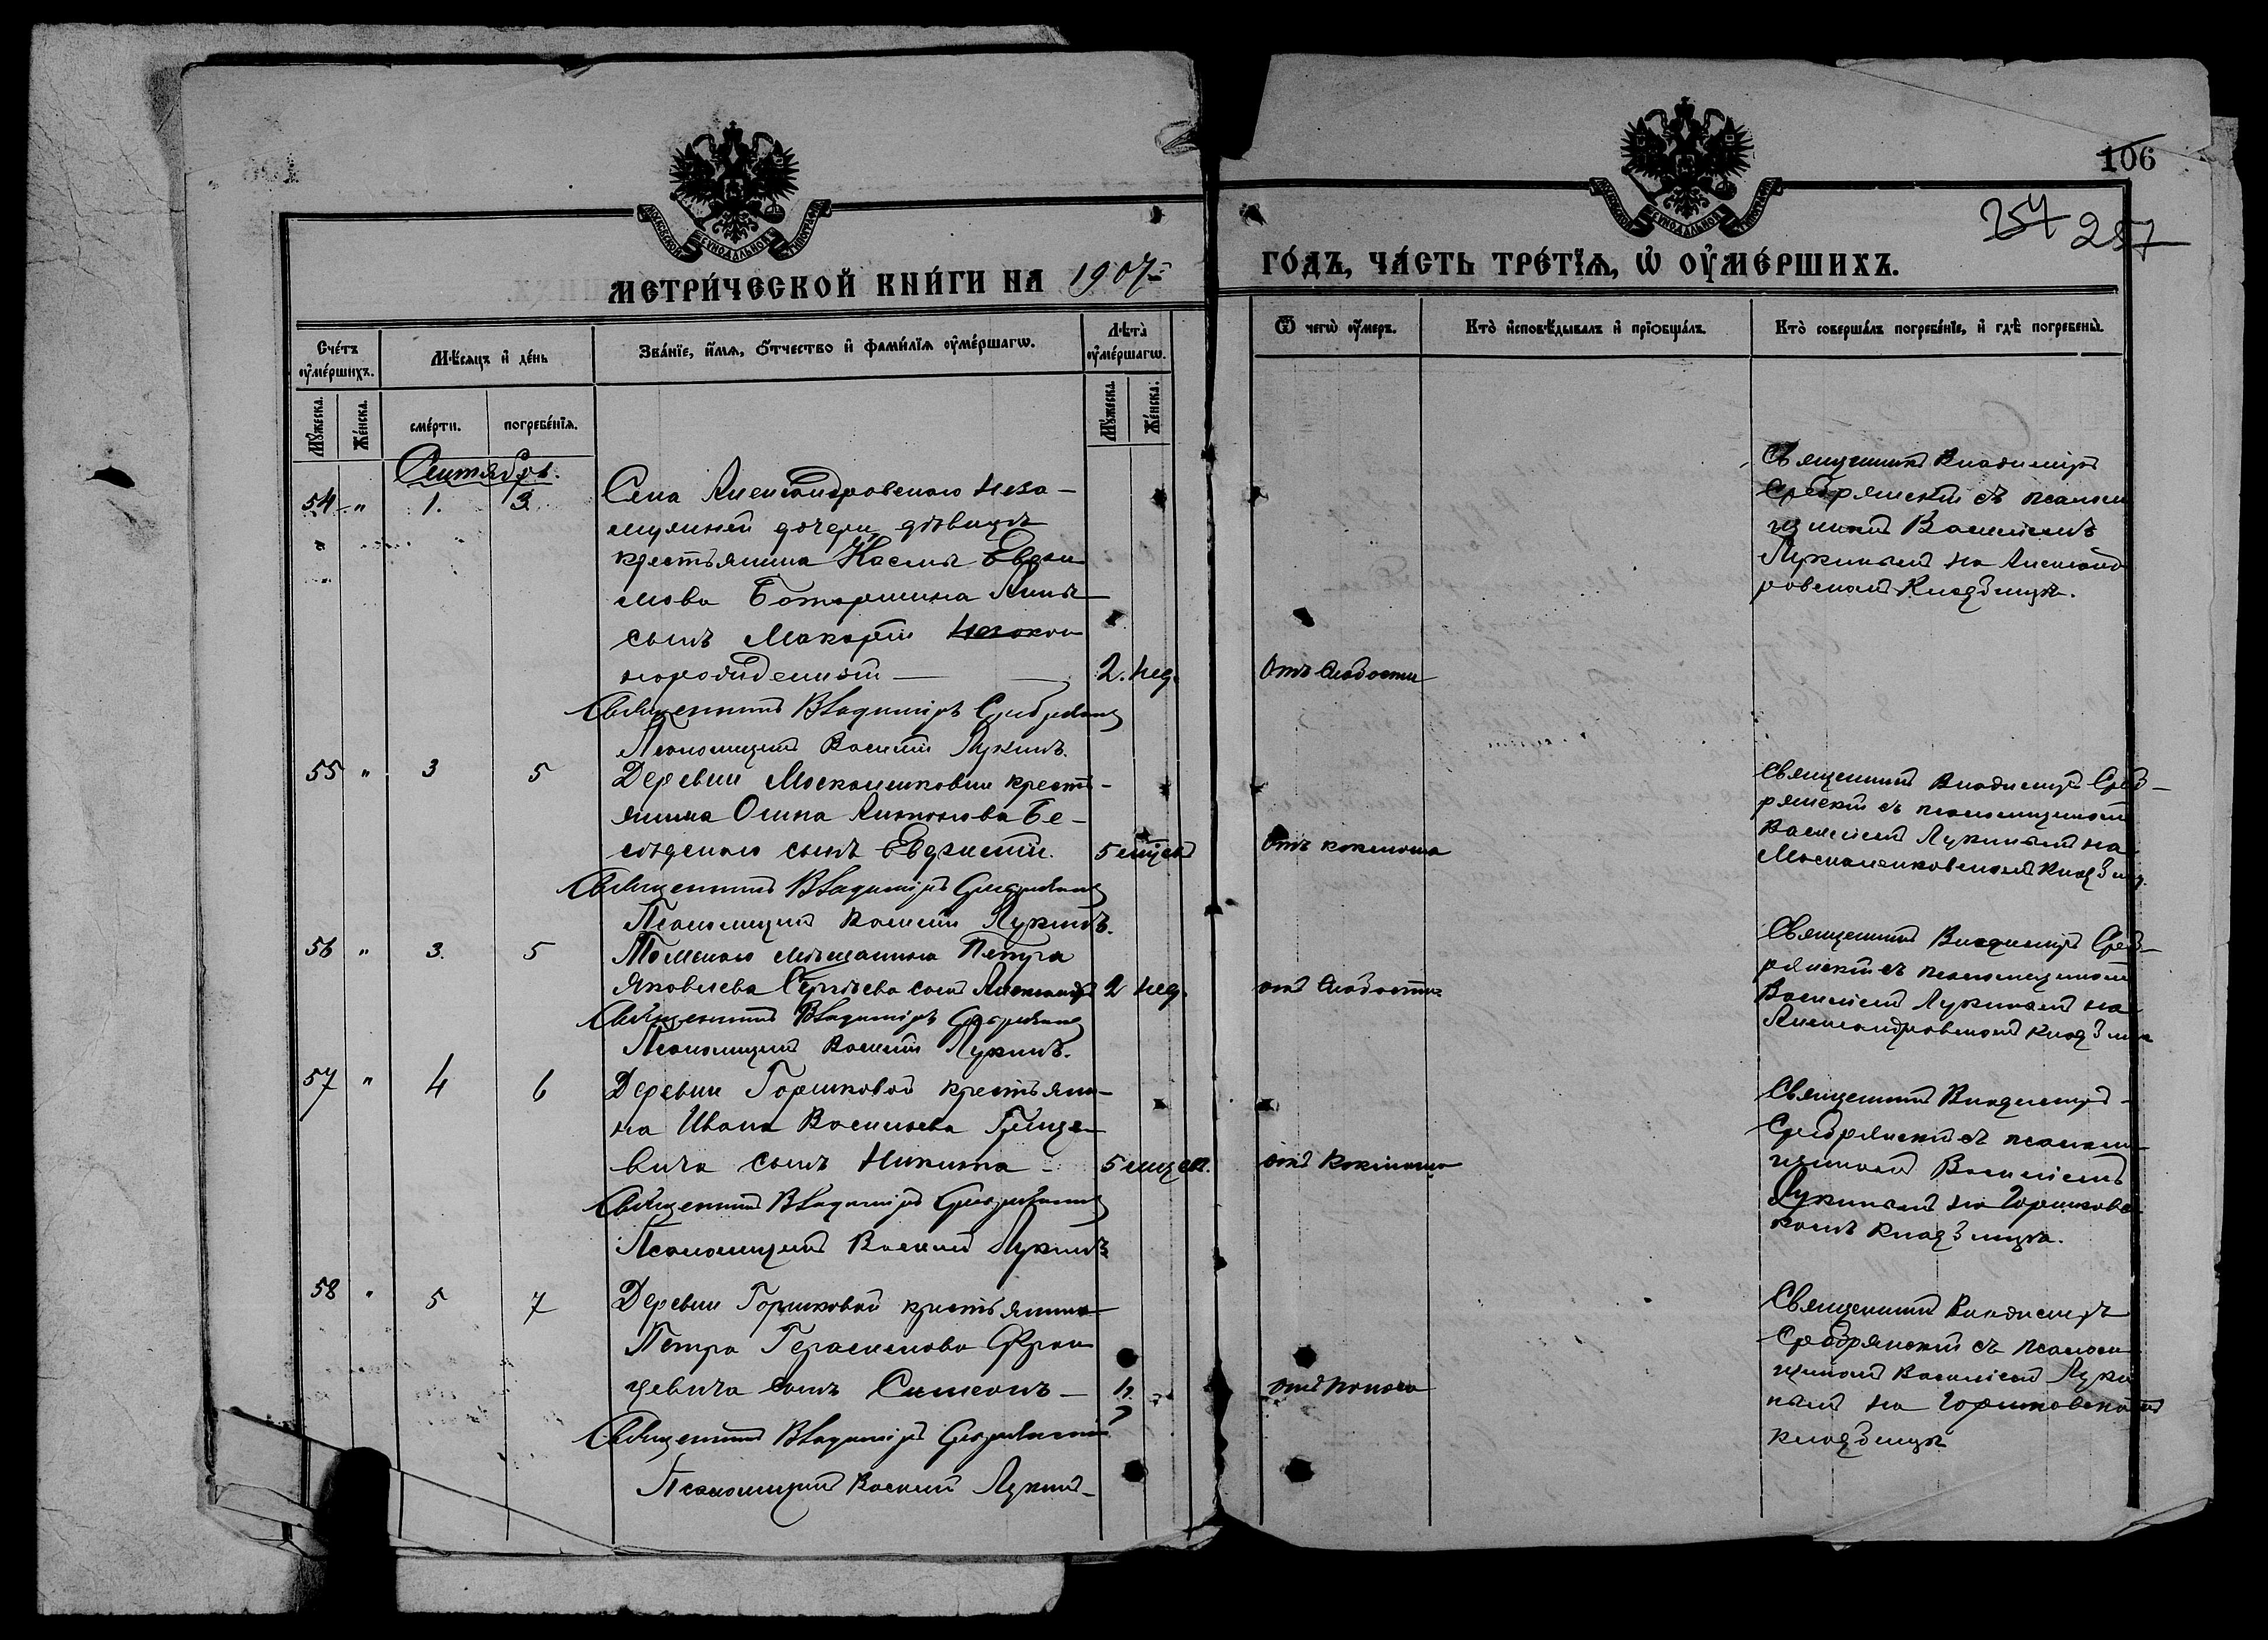 106
254 257
МЕТРИ́ЧЕСКОЙ КНИ́ГИ НА 1907й
ГО́ДЪ, ЧА́СТЬ ТРЕ́ТЇѦ, Ѡ҆ ОУ҆МЕ́РШИХЪ.
Сче́тъ оу҆ме́ршихъ.
Мѣ́сяцъ и҆ де́нь
Зва́нїе, и҆́мѧ, ѻ҆́тчество и҆ фами́лїѧ оу҆ме́ршагѡ.
Лѣ́та оу҆ме́ршагѡ.
Ѿ чегѡ̀ оу҆́меръ.
Кто̀ и҆сповѣ́дывалъ и҆ прїѡбща́лъ.
Кто̀ соверша́лъ погребе́нїе, и҆ гдѣ̀ погребены̀.
Мꙋ́жеска.
Же́нска.
сме́рти.
погребе́нїѧ.
Мꙋ́жеска.
Же́нска.
Сентябрь.
54 " 1. 3.
Села Александровскаго неза-
мужней дочери дѣвицы
крестьянина
мова Анны
сынъ Макарій
норожденный — 2. нед.
отъ слабости
Священникъ Владиміръ
Сребрянскій съ псалом
щикомъ Василіемъ
Лукинымъ на Александ
ровскомъ кладбищѣ.
Священникъ Владиміръ Сребрянскій
Псаломщикъ Василій Лукинъ.
55 " 3 5
Деревни кресть-
янина Антонова Бе-
сѣдскаго сынъ Евдокимъ. 5 мѣсяц
отъ коклюша
Священникъ Владиміръ Среб-
рянскій съ псаломщикомъ
Василіемъ Лукинымъ на
кладбищ.
Священникъ Владиміръ Сребрянскій
Псаломщикъ Василій Лукинъ.
56 " 3. 5
Томскаго мѣщанина Петра
Яковлева Сергѣева сынъ Александръ 2 нед.
отъ слабости
Священникъ Владиміръ Среб-
рянскій съ псаломщикомъ
Василіемъ Лукинымъ на
Александровскомъ кладбищѣ
Священникъ Владиміръ Сребрянскій
Псаломщикъ Василій Лукинъ.
57 " 4 6
Деревни Горшковой крестьяни-
на Ивана Васильева Грице-
вича сынъ Никита - 5 мѣсяц.
отъ коклюша
Священникъ Владиміръ
Сребрянскій съ псалом-
щикомъ Василіемъ
Лукинымъ на Горшков
комъ кладбищѣ.
Священникъ Владиміръ Сребрянскій
Псаломщикъ Василій Лукинъ
58 " 5 7
Деревни Горшковой крестьянина
Петра Герасимова Фран
цевича сынъ Симеонъ —
отъ поноса
Священникъ Владиміръ
Сребрянскій съ псалом
щикомъ Василіемъ Луки
нымъ на Горшковскомъ
кладбищѣ
Священникъ Владиміръ Сребрянскій
Псаломщикъ Василій Лукинъ-